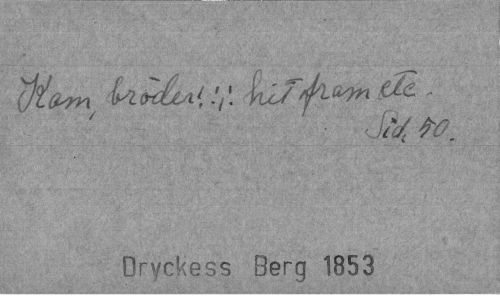 Kom, bröder! :,: hit fram etc.
Sid. 50.
Dryckess Berg 1853